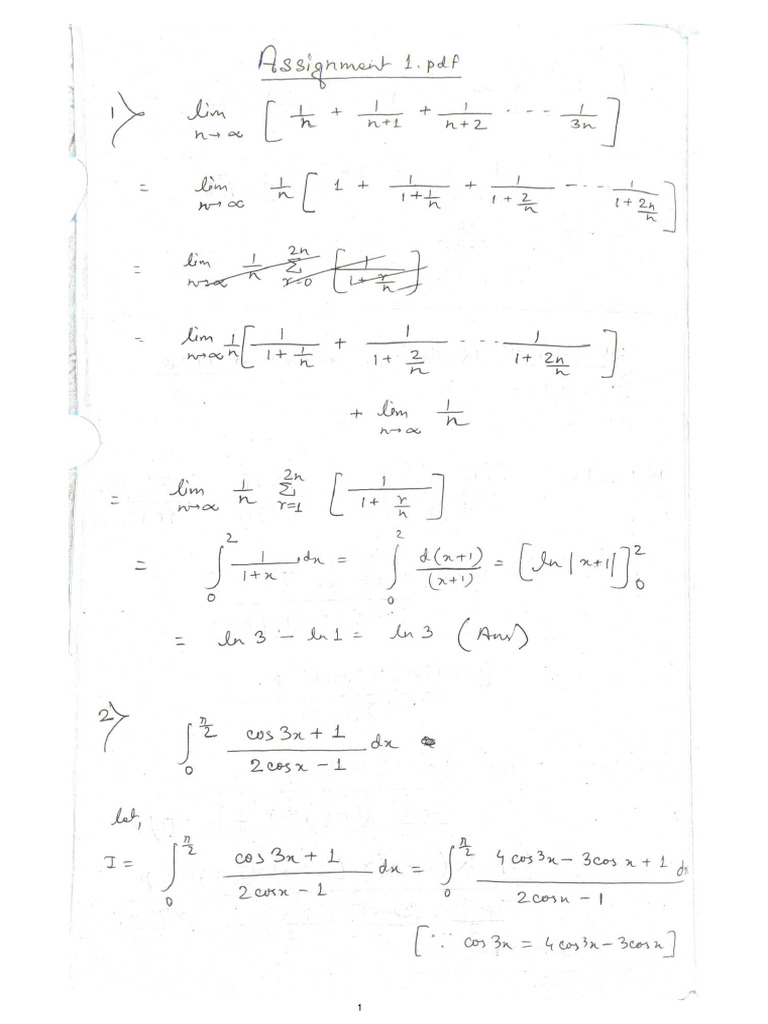 Assignment 1.pdf
1> lim n→∞ [ 1/n + 1/(n+1) + 1/(n+2) ---- 1/3n ]
= lim n→∞ 1/n [ 1 + 1/(1+1/n) + 1/(1+2/n) ---- 1/(1+2n/n) ]
= lim n→∞ 1/n Σ r=0 2n [ 1/(1+r/n) ]
= lim n→∞ 1/n [ 1/(1+1/n) + 1/(1+2/n) ---- 1/(1+2n/n) ]
+ lim n→∞ 1/n
= lim n→∞ 1/n Σ r=1 2n [ 1/(1+r/n) ]
= ∫ 0 2 1/(1+x) dx = ∫ 0 2 d(x+1)/(x+1) = [ ln|x+1| ] 0 2
= ln 3 - ln 1 = ln 3 (Ans)
2> ∫ 0 π/2 (cos 3x + 1)/(2 cos x - 1) dx
let,
I = ∫ 0 π/2 (cos 3x + 1)/(2 cos x - 1) dx = ∫ 0 π/2 (4 cos³x - 3 cos x + 1)/(2 cos x - 1) dx
[∵ cos 3x = 4 cos³x - 3 cos x]
1